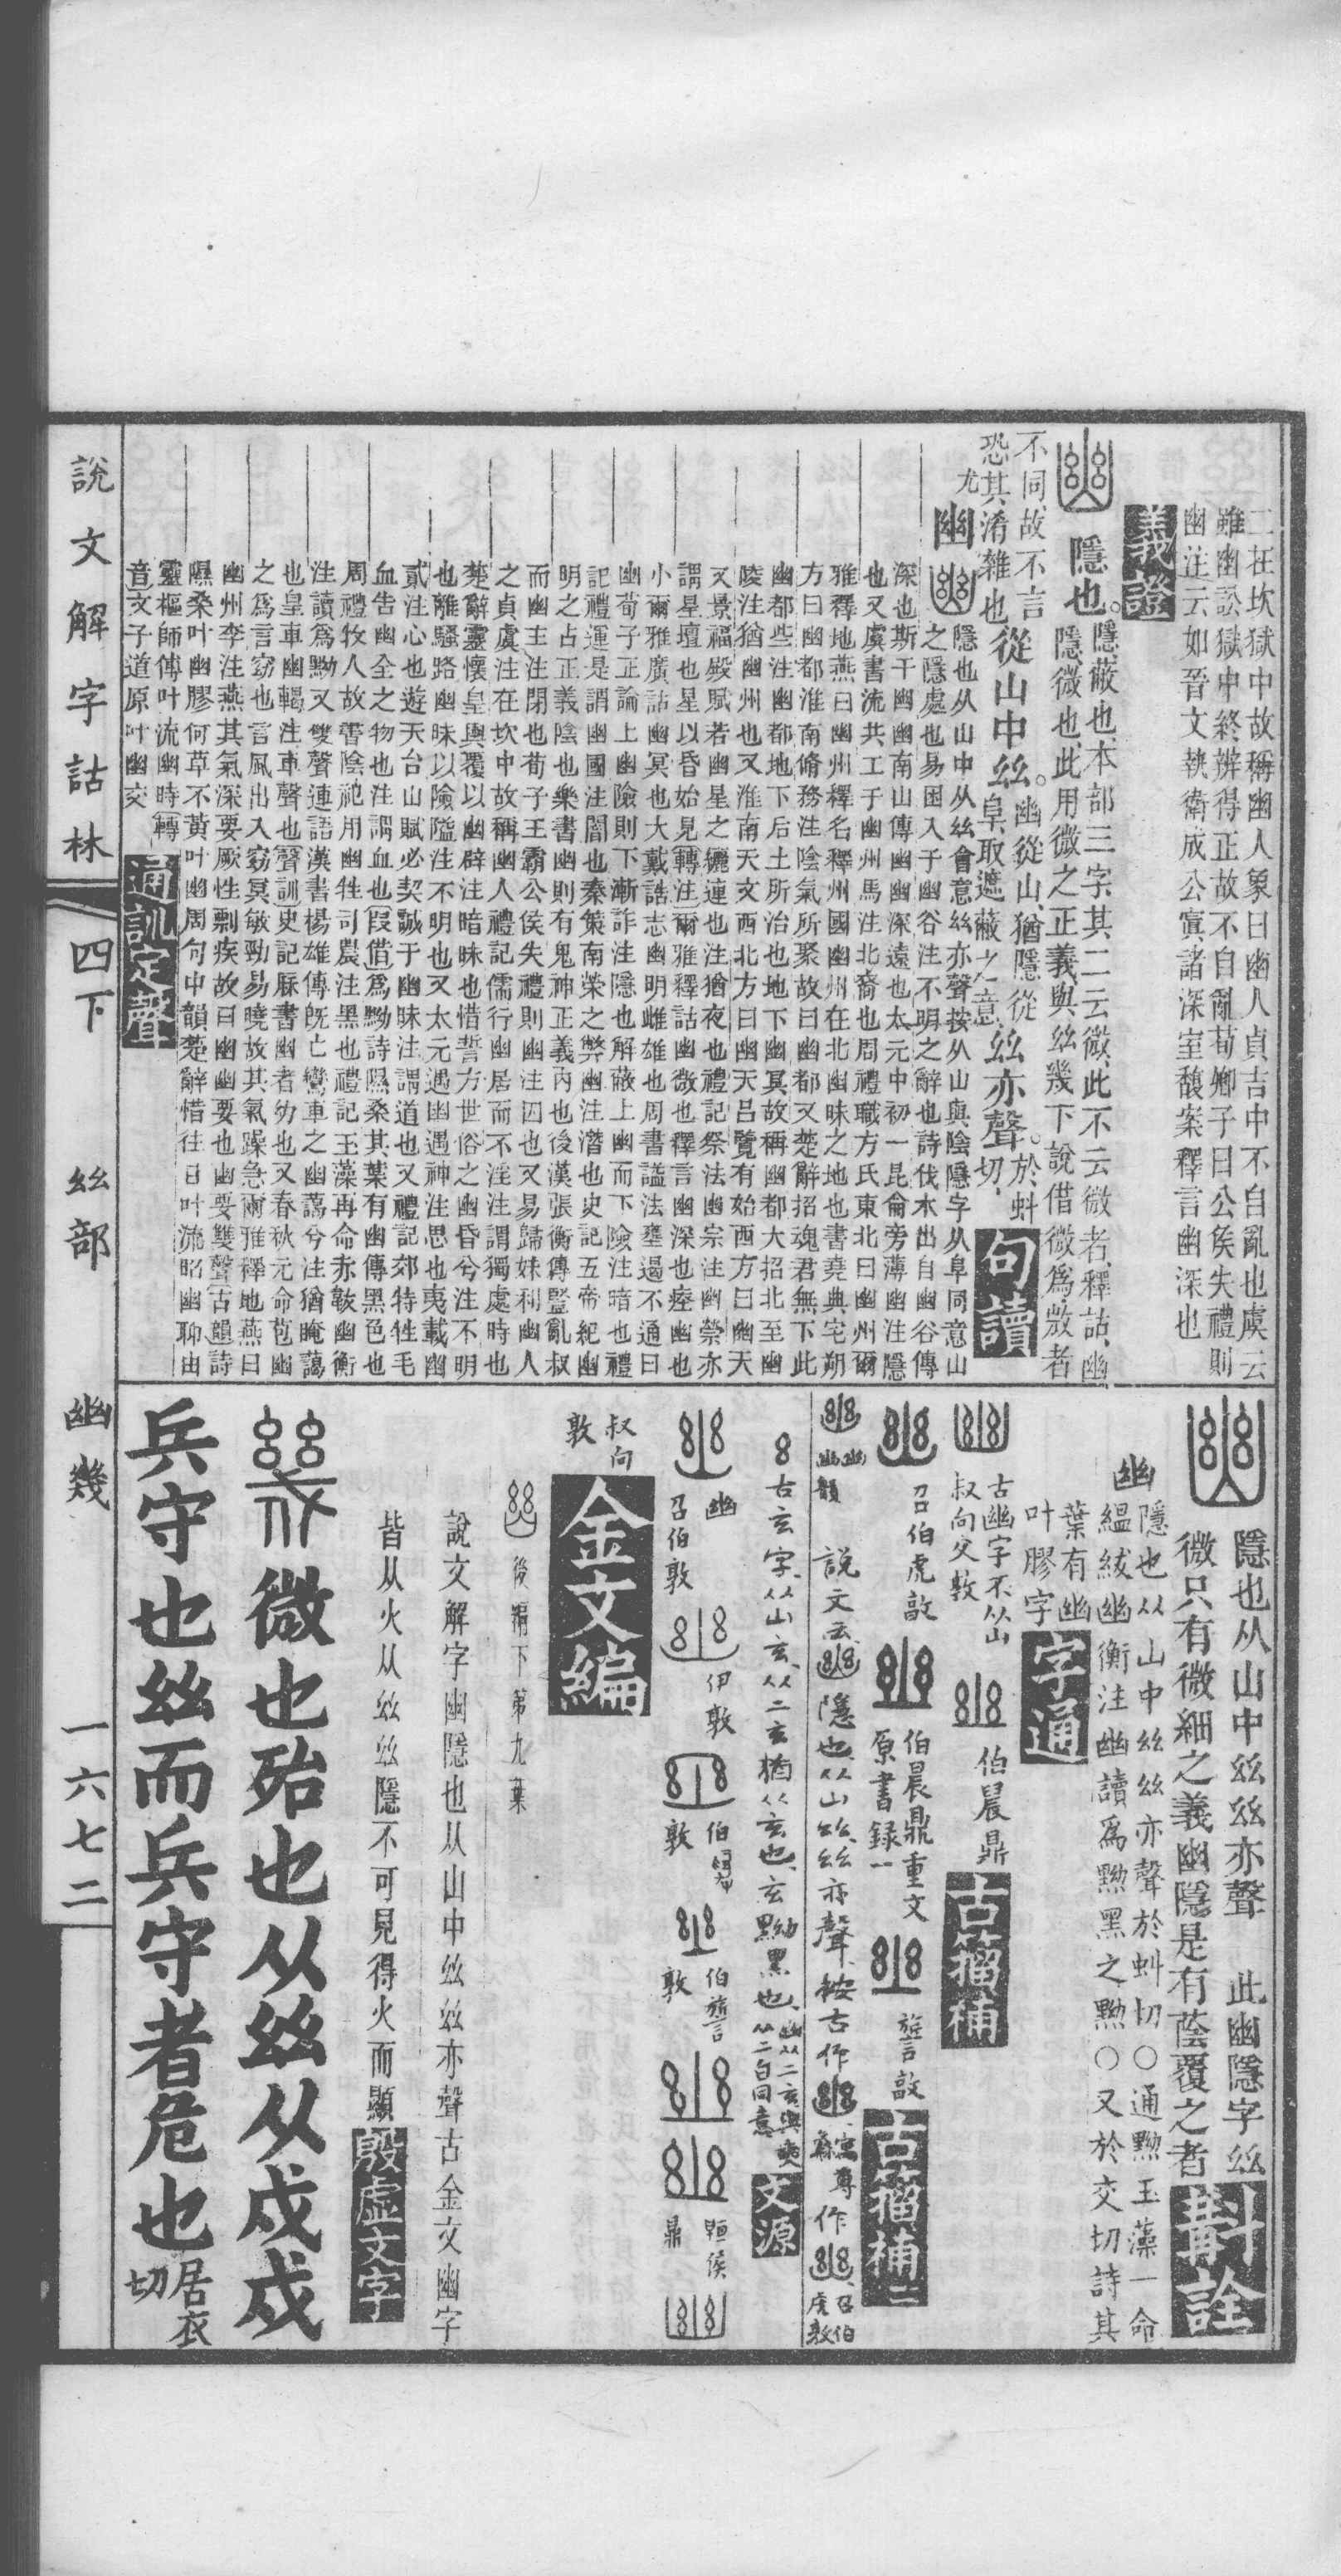 二在坎獄中故稱幽人象曰幽人貞吉中不自亂也虞云
雖幽訟獄中終辨得正故不自亂荀卿子曰公矦失禮則
幽注云如晉文執衛成公寘諸深室馥案釋言幽深也
義證
隱也。隱蔽也、本部三字、其二云微、此不云微者、釋詁、幽
隱、微也、此用微之正義、與𢆶幾下說借微爲𢼸者
不同、故不言
恐其淆雜也
從山中𢆶。幽從山、猶隱從
阜、取遮蔽之意、
𢆶亦聲。於蚪
切、
句讀
尤
幽
隱也从山中从𢆶會意𢆶亦聲按从山與陰隱字从阜同意山
之隱處也易困入于幽谷注不明之辭也詩伐木出自幽谷傳
深也斯干幽幽南山傳幽幽深遠也太元中初一昆侖旁薄幽注隱
也又虞書流共工于幽州馬注北裔也周禮職方氏東北曰幽州爾
雅釋地燕曰幽州釋名釋州國幽州在北幽昧之地也書堯典宅朔
方曰幽都淮南脩務注陰氣所聚故曰幽都又楚辭招魂君無下此
幽都些注幽都地下后土所治也地下幽冥故稱幽都大招北至幽
陵注猶幽州也又淮南天文西北方曰幽天呂覽有始西方曰幽天
又景福殿賦若幽星之纚連也注猶夜也禮記祭法幽宗注幽禜亦
謂星壇也星以昏始見轉注爾雅釋詁幽微也釋言幽深也瘞幽也
小爾雅廣詁幽冥也大戴誥志幽明雌雄也周書謚法壅遏不通曰
幽荀子正論上幽險則下漸詐注隱也解蔽上幽而下險注暗也禮
記禮運是謂幽國注闇也秦策南榮之弊幽注潛也史記五帝紀幽
明之占正義陰也樂書幽則有鬼神正義內也後漢張衡傳豎亂叔
而幽主注閉也荀子王霸公侯失禮則幽注囚也又易歸妹利幽人
之貞虞注在坎中故稱幽人禮記儒行幽居而不淫注謂獨處時也
楚辭靈懷皇輿覆以幽辟注暗昧也惜誓方世俗之幽昏兮注不明
也離騷路幽昧以險隘注不明也又太元遇幽遇神注思也夷載幽
貳注心也遊天台山賦必契誠于幽昧注謂道也又禮記郊特牲毛
血告幽全之物也注謂血也叚借爲黝詩隰桑其葉有幽傳黑色也
周禮牧人故書陰祀用幽牲司農注黑也禮記玉藻再命赤韍幽衡
注讀爲黝又雙聲連語漢書楊雄傳旣亡鸞車之幽藹兮注猶晻藹
也皇車幽轕注車聲也聲訓史記厤書幽者幼也又春秋元命苞幽
之爲言窈也言風出入窈冥敏勁易曉故其氣躁急爾雅釋地燕曰
幽州李注燕其氣深要厥性剽疾故曰幽幽要也幽要雙聲古韻詩
隰桑叶幽膠何草不黃叶幽周句中韻楚辭惜往日叶流昭幽聊由
靈樞師傳叶流幽時轉
音文子道原叶幽交
通訓定聲
隱也从山中𢆶𢆶亦聲 此幽隱字𢆶
微只有微細之義幽隱是有蔭覆之者
斠詮
幽
隱也从山中𢆶𢆶亦聲於蚪切○通黝玉藻一命
縕紱幽衡注幽讀爲黝黑之黝○又於交切詩其
葉有幽
叶膠字
字通
古幽字不从山
叔向父敦
伯晨鼎
古籀補
召伯虎敦
伯晨鼎重文
原書錄一
旂言敦
古籀補二
幽 韻
說文云 隱也、从山𢆶、𢆶亦聲、按古作 作 召伯虎敦
8古玄字、从山玄、从二玄猶从玄也、玄黝黑也、
文源
幽
召伯敦
伊敦
伯 敦
伯 敦
鼎
叔向
敦
金文編
後編下第九葉
說文解字幽隱也从山中𢆶𢆶亦聲古金文幽字
皆从火从𢆶𢆶隱不可見得火而顯
殷虛文字
微也殆也从𢆶从戍戍
兵守也𢆶而兵守者危也居衣
切
說文解字詁林
四下
𢆶部
幽幾
一六七二